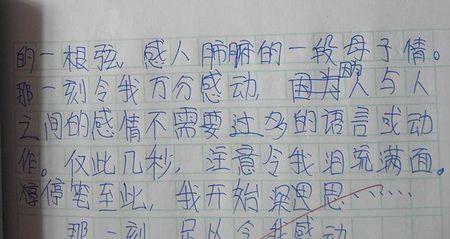 的一根弦，感人肺腑的一段母子情。
那一刻令我万分感动，因为人与人
之间的感情不需要过多的语言或动
作。仅此几秒，注意令我泪流满面。
停笔至此，我开始深思思……
那一刻，足以令我感动